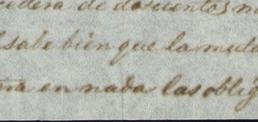 cedera de doscientos
sabe bien que la muta
en nada las oblig